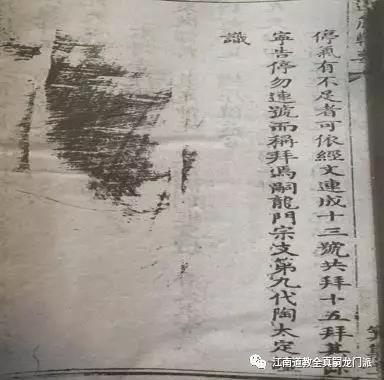 停氣有不足者可依經文連成十三號共拜十五拜其餘
寧告停勿連號而稱拜鴻嗣龍門宗支第九代陶太定
識
江南道教全真嗣龙门派